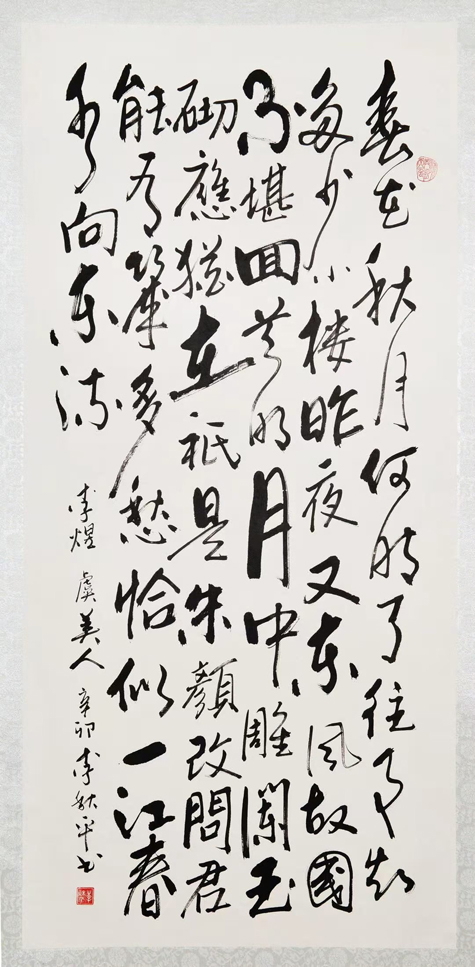 春花秋月何時了往事知
多少小楼昨夜又東風故國
不堪回首明月中雕闌玉
砌應猶在祇是朱顏改問君
能有幾多愁恰似一江春
水向東流
李煜 虞美人 辛卯 李秋平书